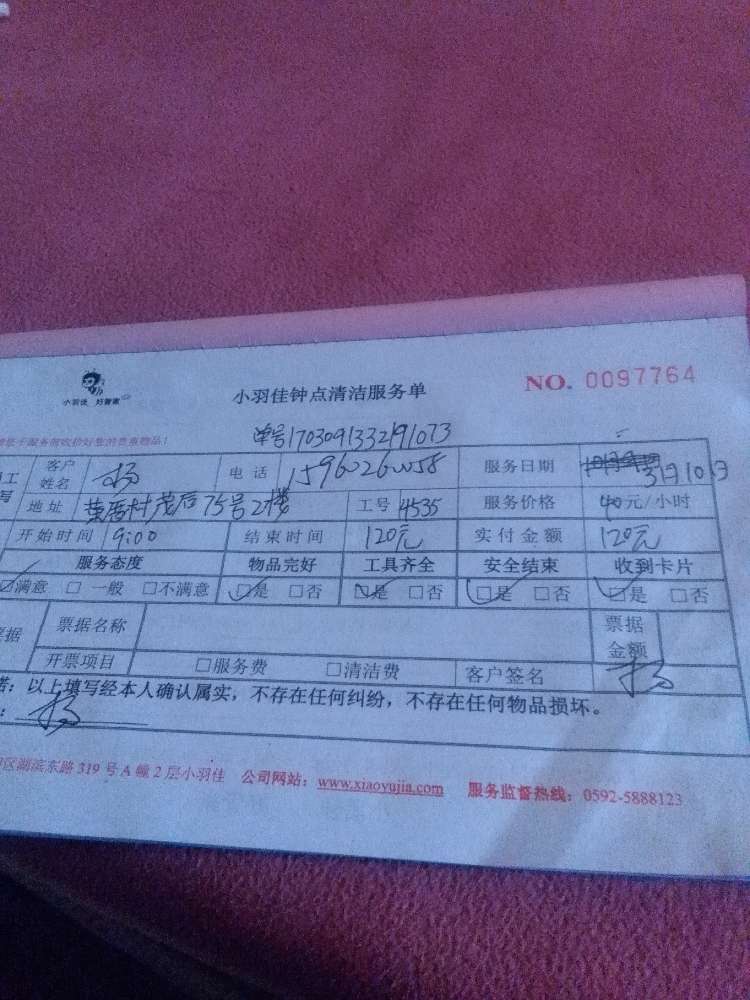 小羽佳 好管家
小羽佳钟点清洁服务单
NO. 0097764
单号1703091332191073
客户姓名 杨 电话 服务日期 3月10日
地址 后75号2楼 工号 4535 服务价格 40元/小时
开始时间 9:00 结束时间 120元 实付金额 120元
服务态度 物品完好 工具齐全 安全结束 收到卡片
☑满意 □ 一般 □不满意 ☑是 □否 ☑是 □否 ☑是 □否 ☑是 □否
票据名称 票据金额
开票项目 □服务费 □清洁费 客户签名 杨
：以上填写经本人确认属实，不存在任何纠纷，不存在任何物品损坏。
：杨
区湖滨东路 319 号 A 幢 2 层小羽佳 公司网站：www.xiaoyujia.com 服务监督热线：0592-5888123